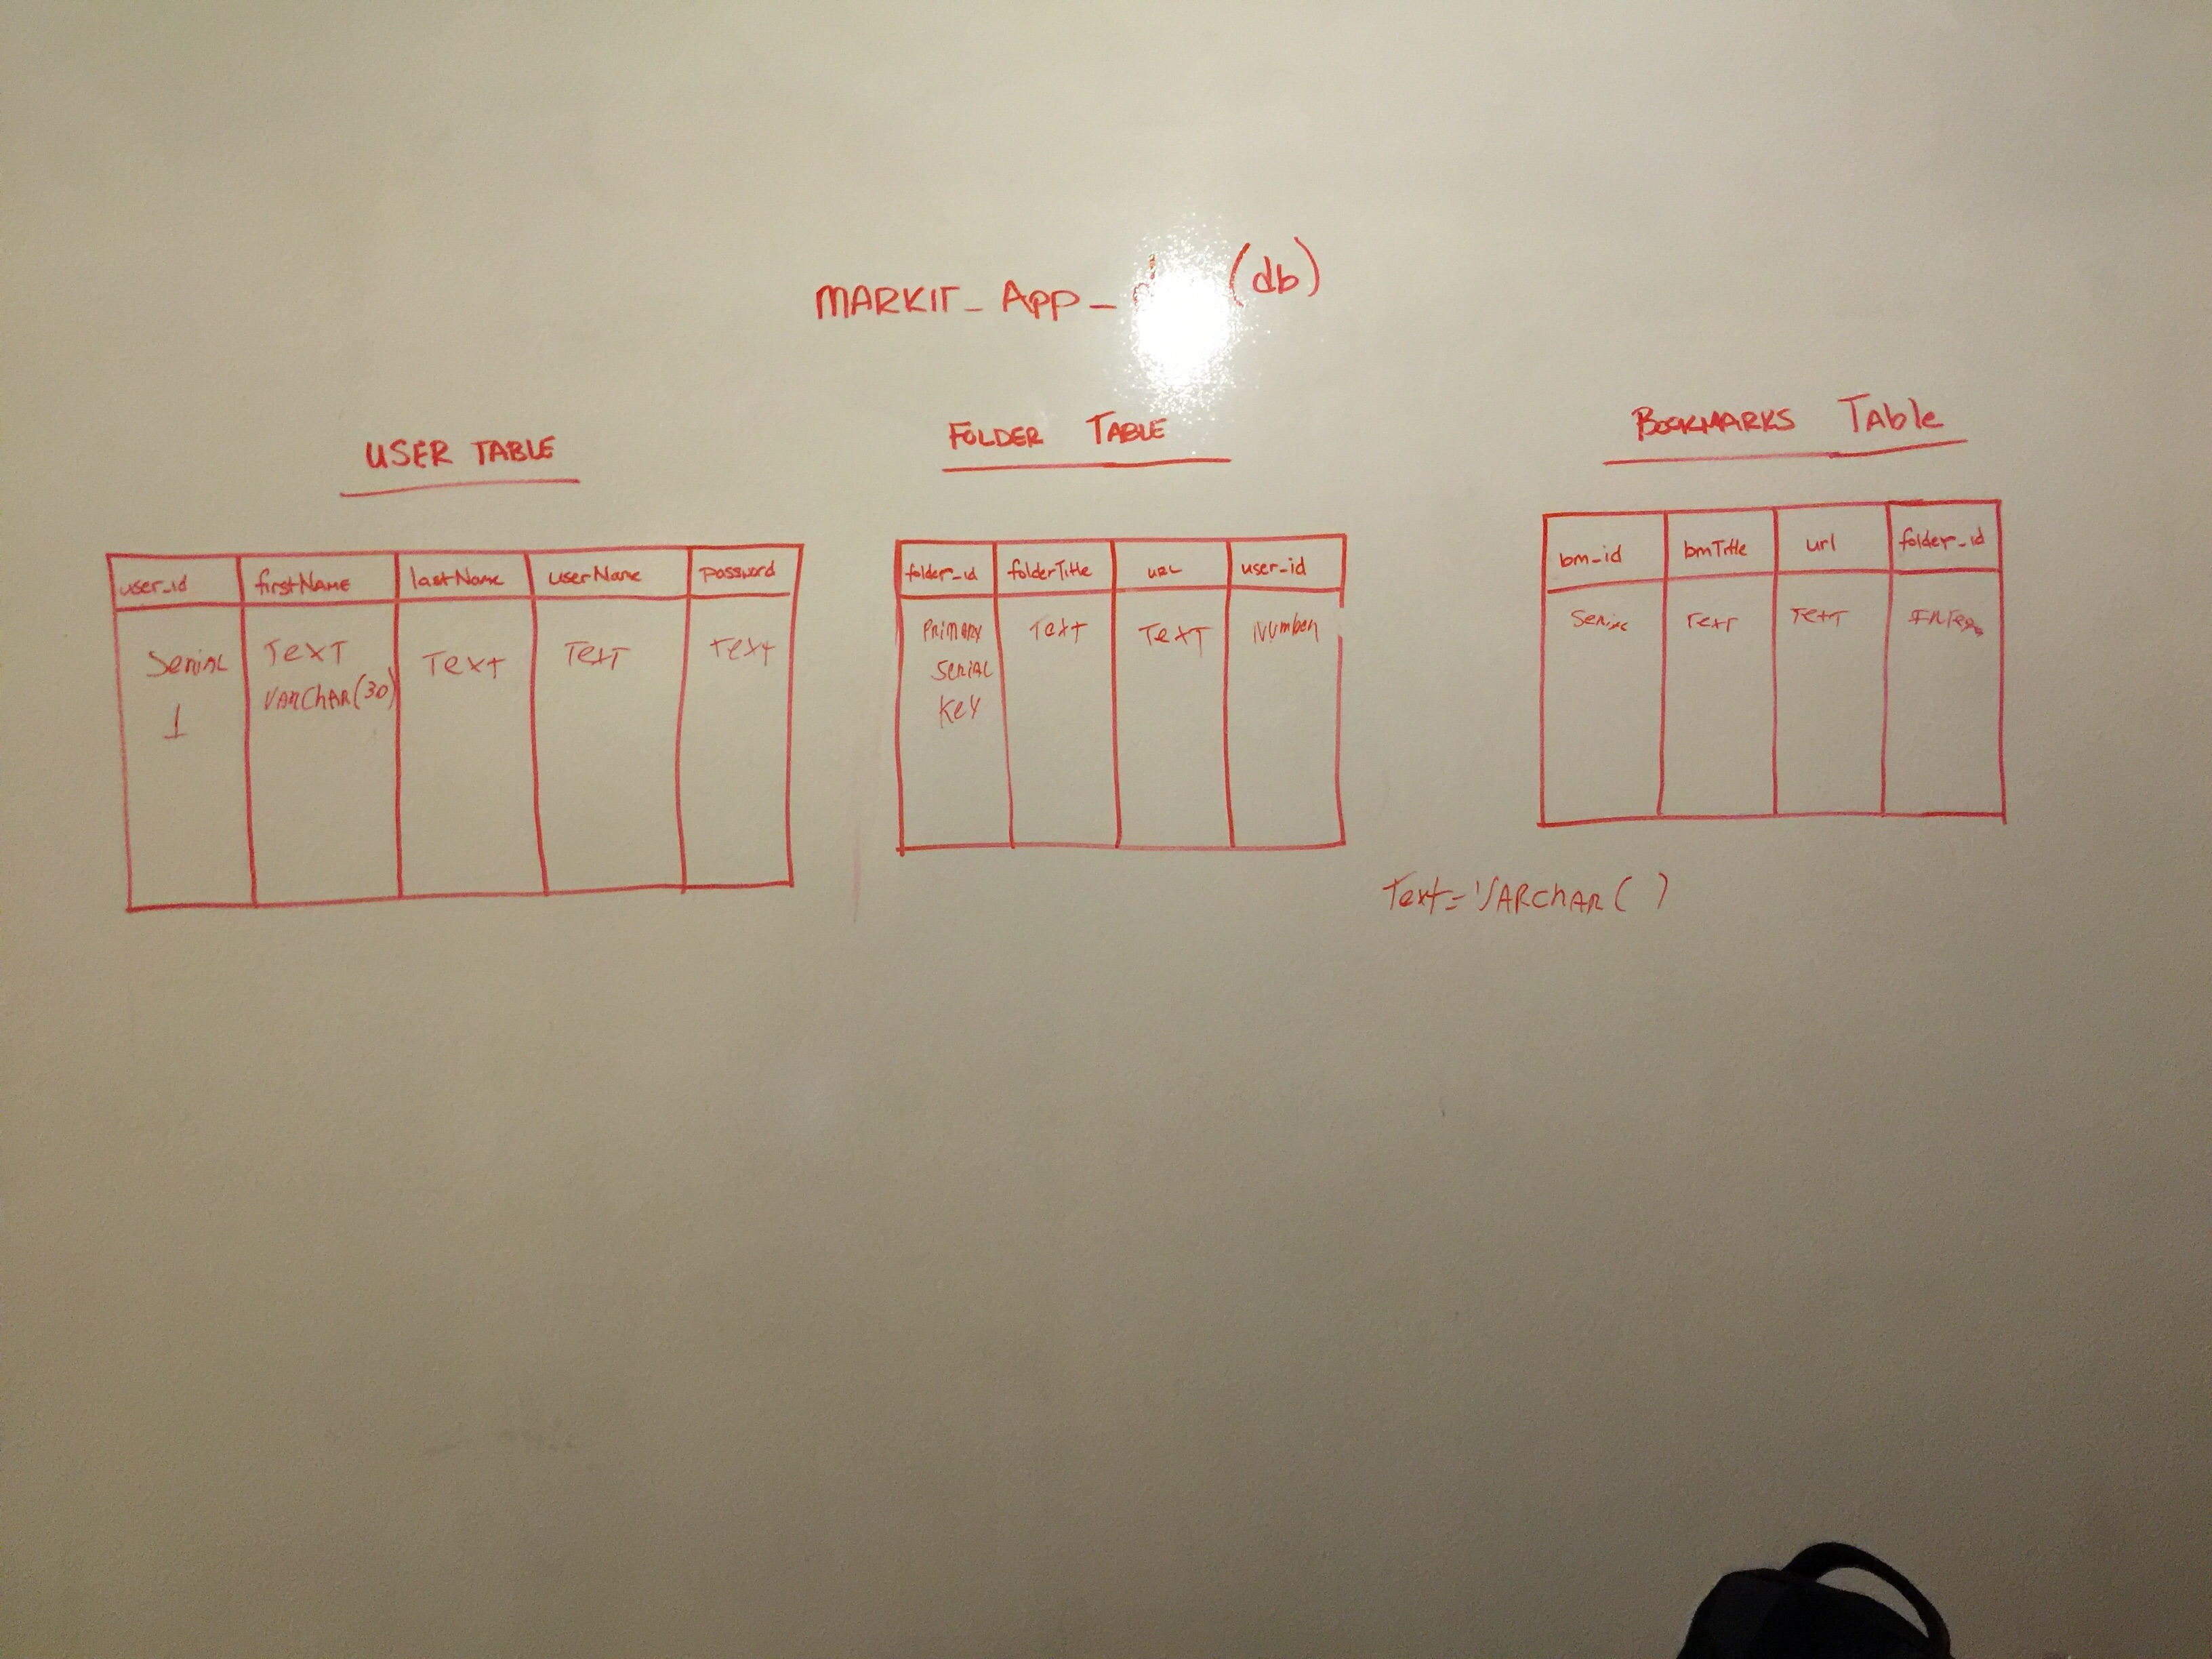 MARKIT_App_ (db)
USER TABLE
user_id firstName lastName userName password
Serial Text Text Text Text
VARChAR(30)
1
FOLDER TABLE
folder_id folderTitle URL user_id
Primary Text Text Number
Serial
Key
BOOKMARKS TAble
bm_id bmTitle url folder_id
Serial Text Text
Text = VARChAR( )